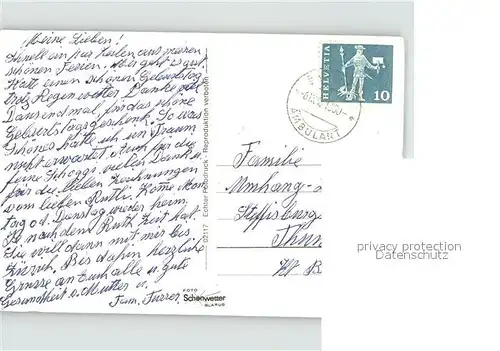 Meine Lieben!
Schnell ein paar Zeilen aus meinen
schönen Ferien. Mir geht es gut.
Hatte einen schönen Geburtstag
trotz Regenwetter. Danke viel
Dausendmal für das schöne
Geburtstagsgeschenk. So was
Schönes hätte ich im Traum
nicht erwartet. Auch für die
feine Schoggi vielen Dank u.
für die lieben Zeichnungen
vom lieben Ruthli. Kome Mon
tag od. Dienstag wieder heim.
Je nach dem Ruth Zeit hat.
Sie will dann mit mir bis
Zürich. Bis dahin herzliche
Grüsse an Euch alle u. gute
Gesundheit v. Mutter u.
Fam. Furrer
02117 Echter Fotodruck - Reproduktion verboten
FOTO
Schönwetter
GLARUS
HELVETIA
10
AMBULANT
Familie
Umhang-
Steffisburg
Thun
privacy protection
Datenschutz